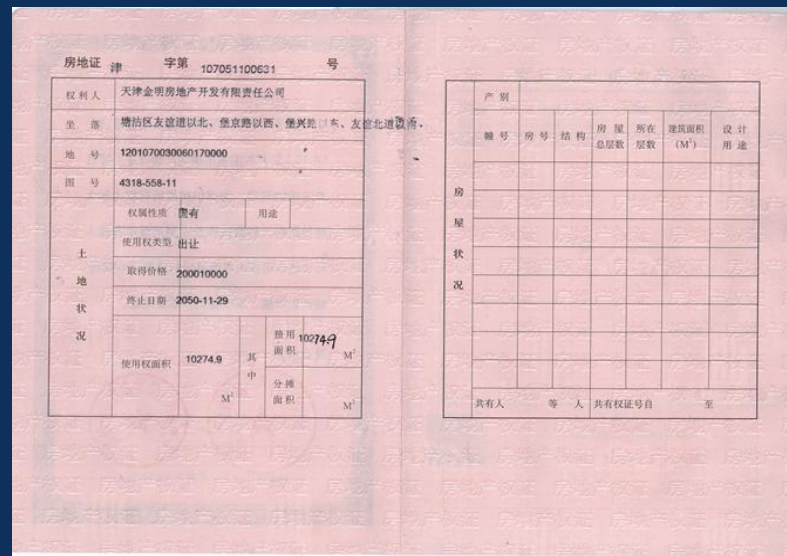 房地证 津 字第 107051100631 号
权利人 天津金明房地产开发有限责任公司
坐落 塘沽区友谊道以北、堡京路以西、堡兴路以东、友谊北道以南。
地号 1201070030060170000
图号 4318-558-11
土地状况
权属性质 国有 用途
使用权类型 出让
取得价格 200010000
终止日期 2050-11-29
使用权面积 10274.9 M² 其中 独用面积 10274.9 M²
分摊面积 M²
房屋状况
产别
幢号 房号 结构 房屋总层数 所在层数 建筑面积(M²) 设计用途
共有人 等 人 共有权证号自 至